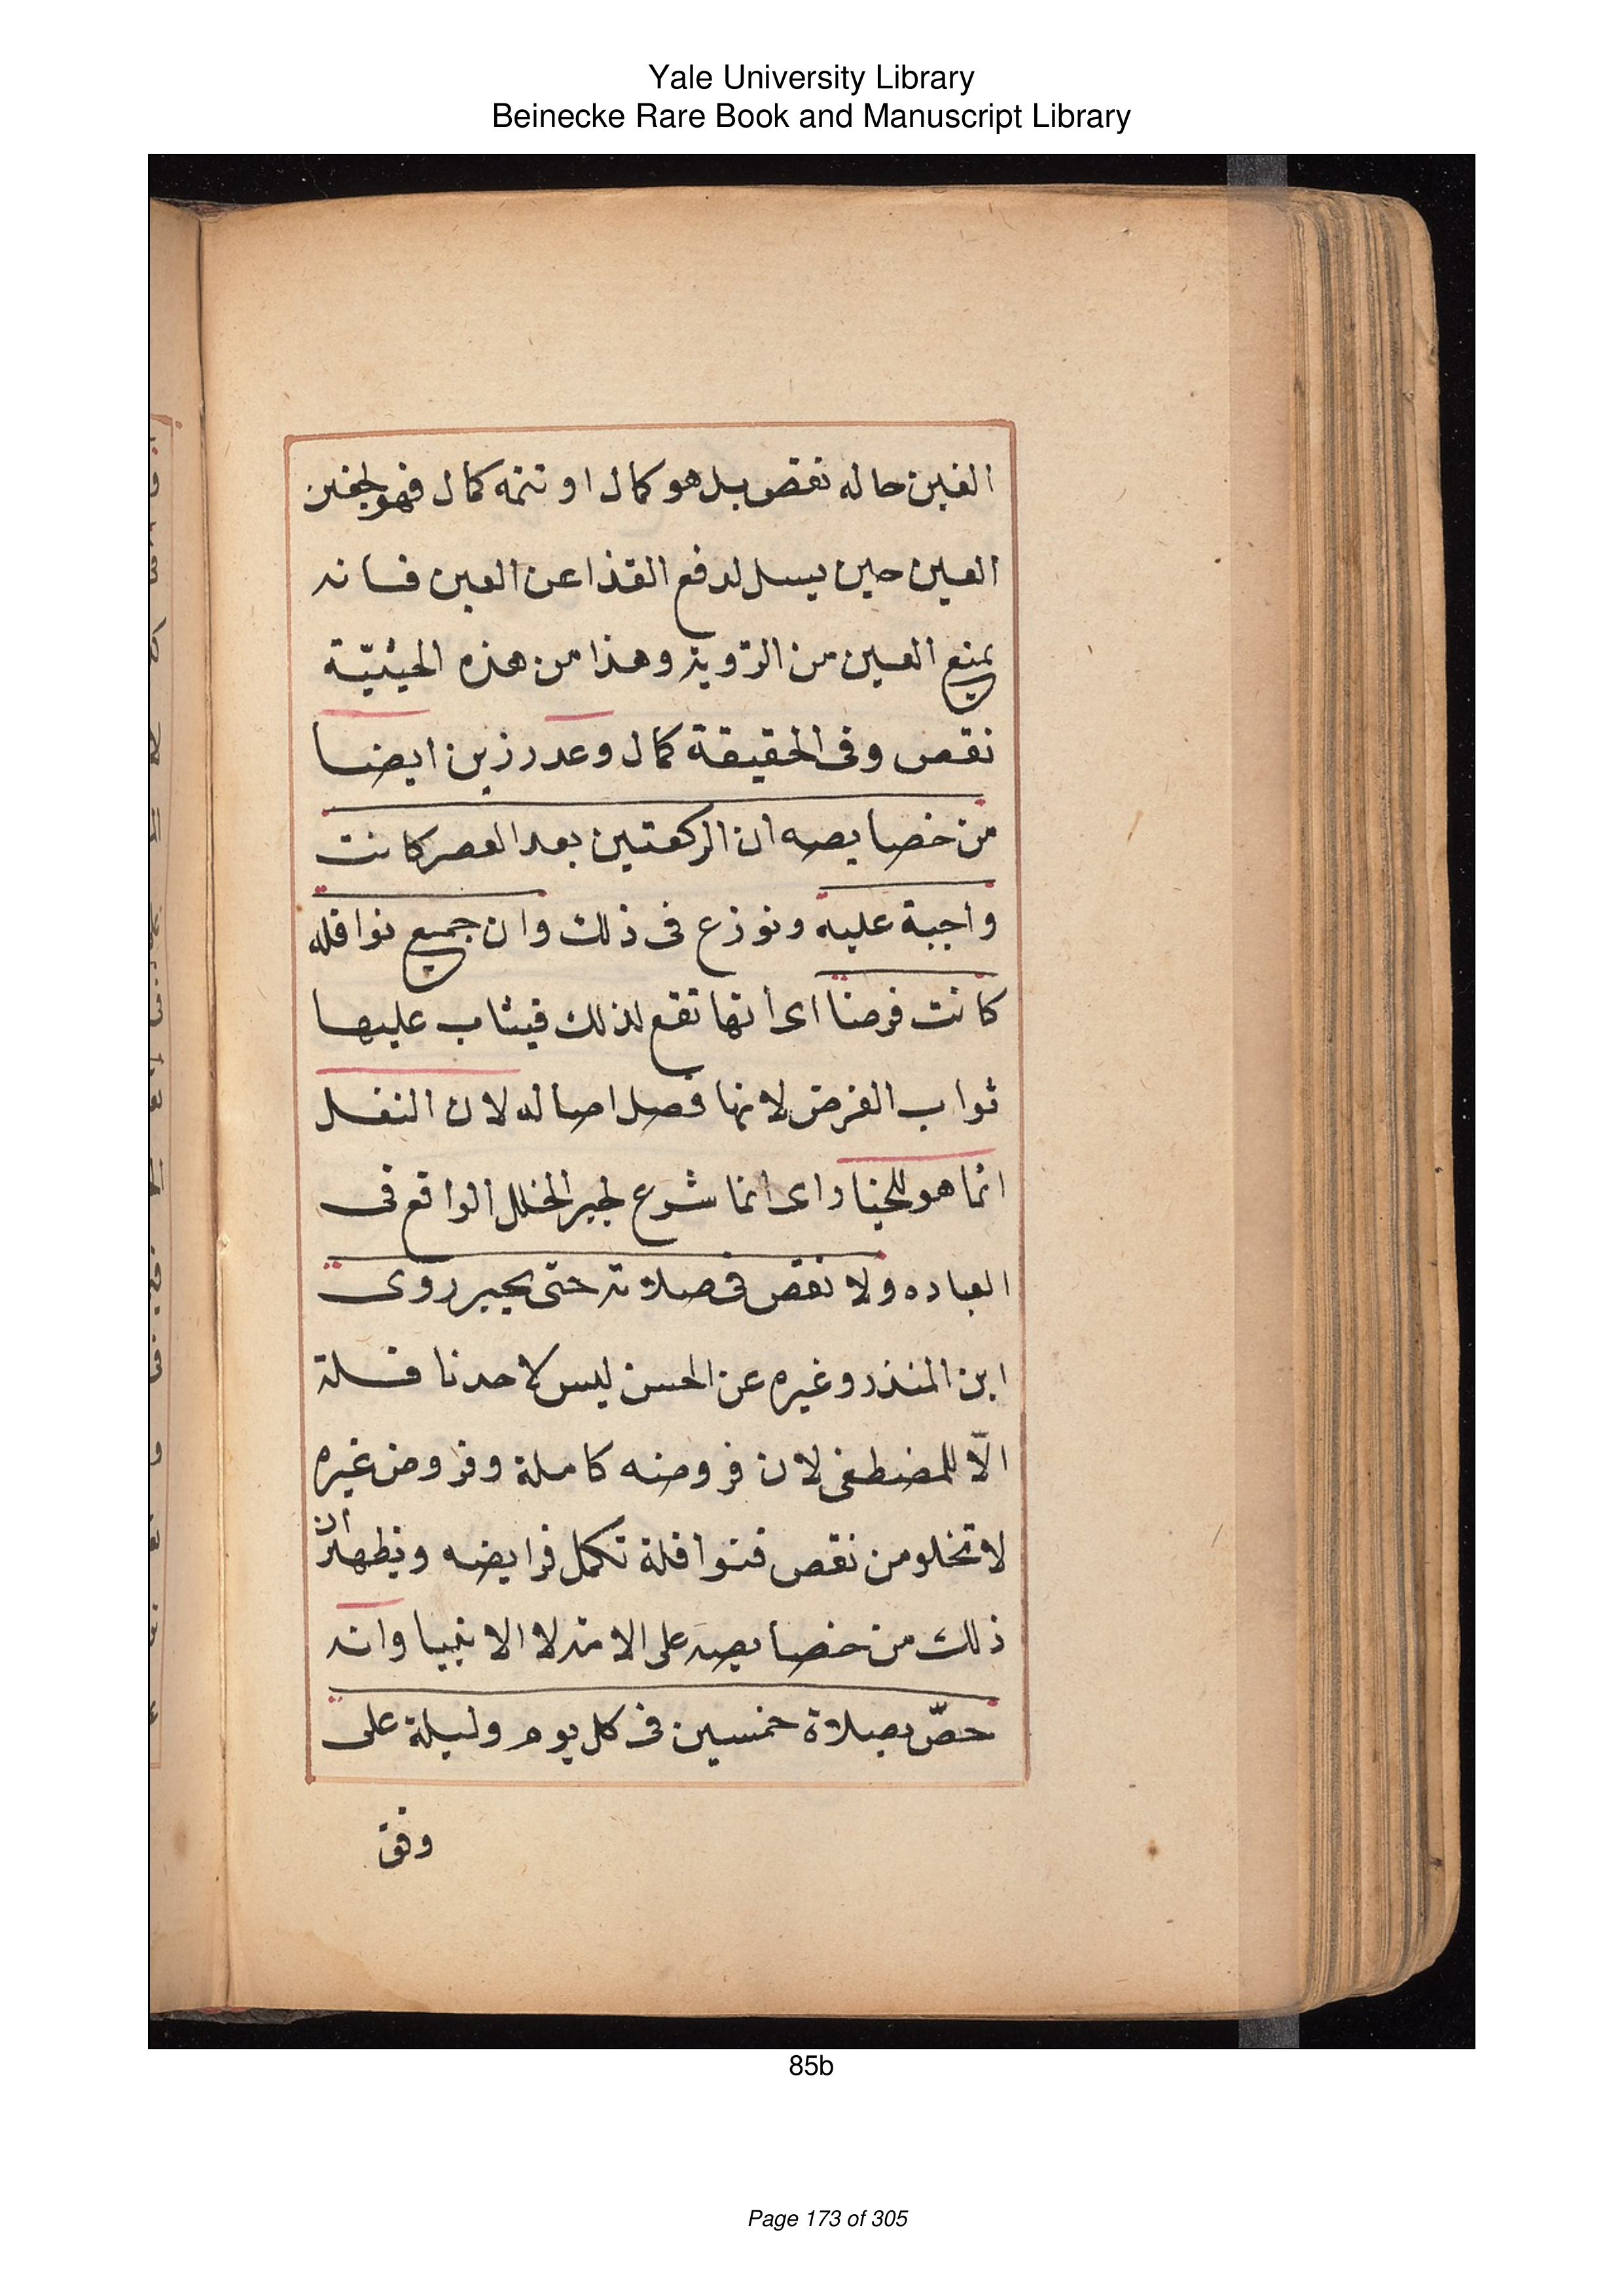 Yale University Library
Beinecke Rare Book and Manuscript Library
الغين حاله نقص بل هو كمال او تتمه كمال فهو كجفن
العين حين يسبل لدفع القذا عن العين فانه
يمنع العين من الرؤية وهذا من هذه الحيثيّة
نقص وفى الحقيقة كمال وعد رزين ايضا
من خصايصه ان الركعتين بعد العصر كانت
واجبة عليه ونوزع فى ذلك وان جميع نوافله
كانت فرضا اى انها تقع لذلك فيثاب عليها
ثواب الفرض لانها فصل اصاله لان النفل
انما هو للجبار اى انما شرع لجبر الخلل الواقع فى
العباده ولا نقص فى صلاته حتى يجبر روى
ابن المنذر وغيره عن الحسن ليس لاحد نافلة
الّا للمصطفى لان فروضه كاملة وفروض غيره
لا تخلو من نقص فنوافلة تكمل فرايضه ويظهر ان
ذلك من خصايصه على الامة لا الانبيا وانه
خصّ بصلاة خمسين فى كل يوم وليلة على
وفق
85b
Page 173 of 305